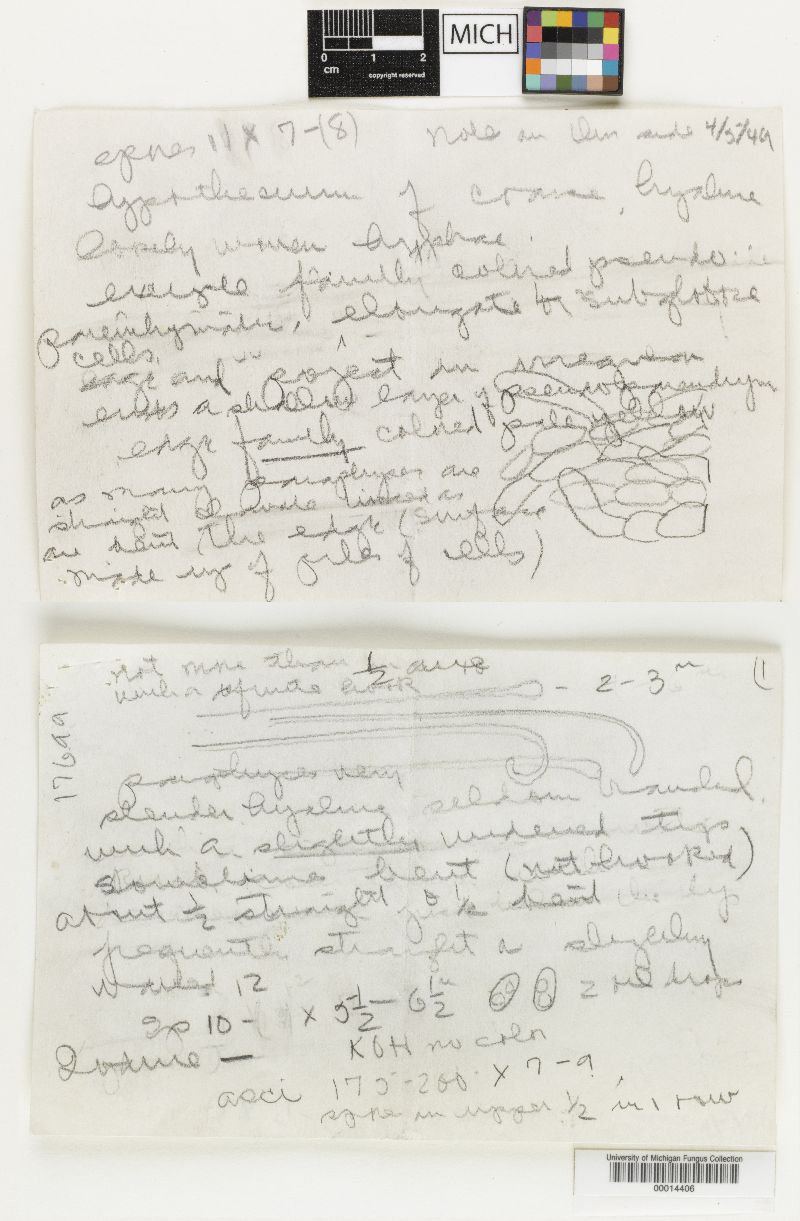 0 1 2
cm
copyright reserved
MICH
spores 11 x 7-(8) Note on this side 4/5/49
hypothecium of coarse, hyaline
loosely woven hyphae
exciple faintly colored pseudo
parenchymatic, elongate or subglobose
cells,
edge and project in irregular
ends a shallow layer of pseudoparenchym
edge faintly colored pale yellow
as many paraphyses are
straight as
are bent the edge (surface
made up of piles of cells)
not more than 1/2 as
with a hook - 2-3 µ (1
17699
paraphyses very
slender hyaline seldom branched
with a slightly widened tips
sometimes bent (not hooked)
about 1/2 straight & 1/2 bent the tip
frequently straight a slightly
12
Sp 10- x 5 1/2 - 6 1/2 µ 2 oil drops
Iodine - KOH no color
asci 175-200 x 7-9,
spore in upper 1/2 in 1 row
University of Michigan Fungus Collection
00014406